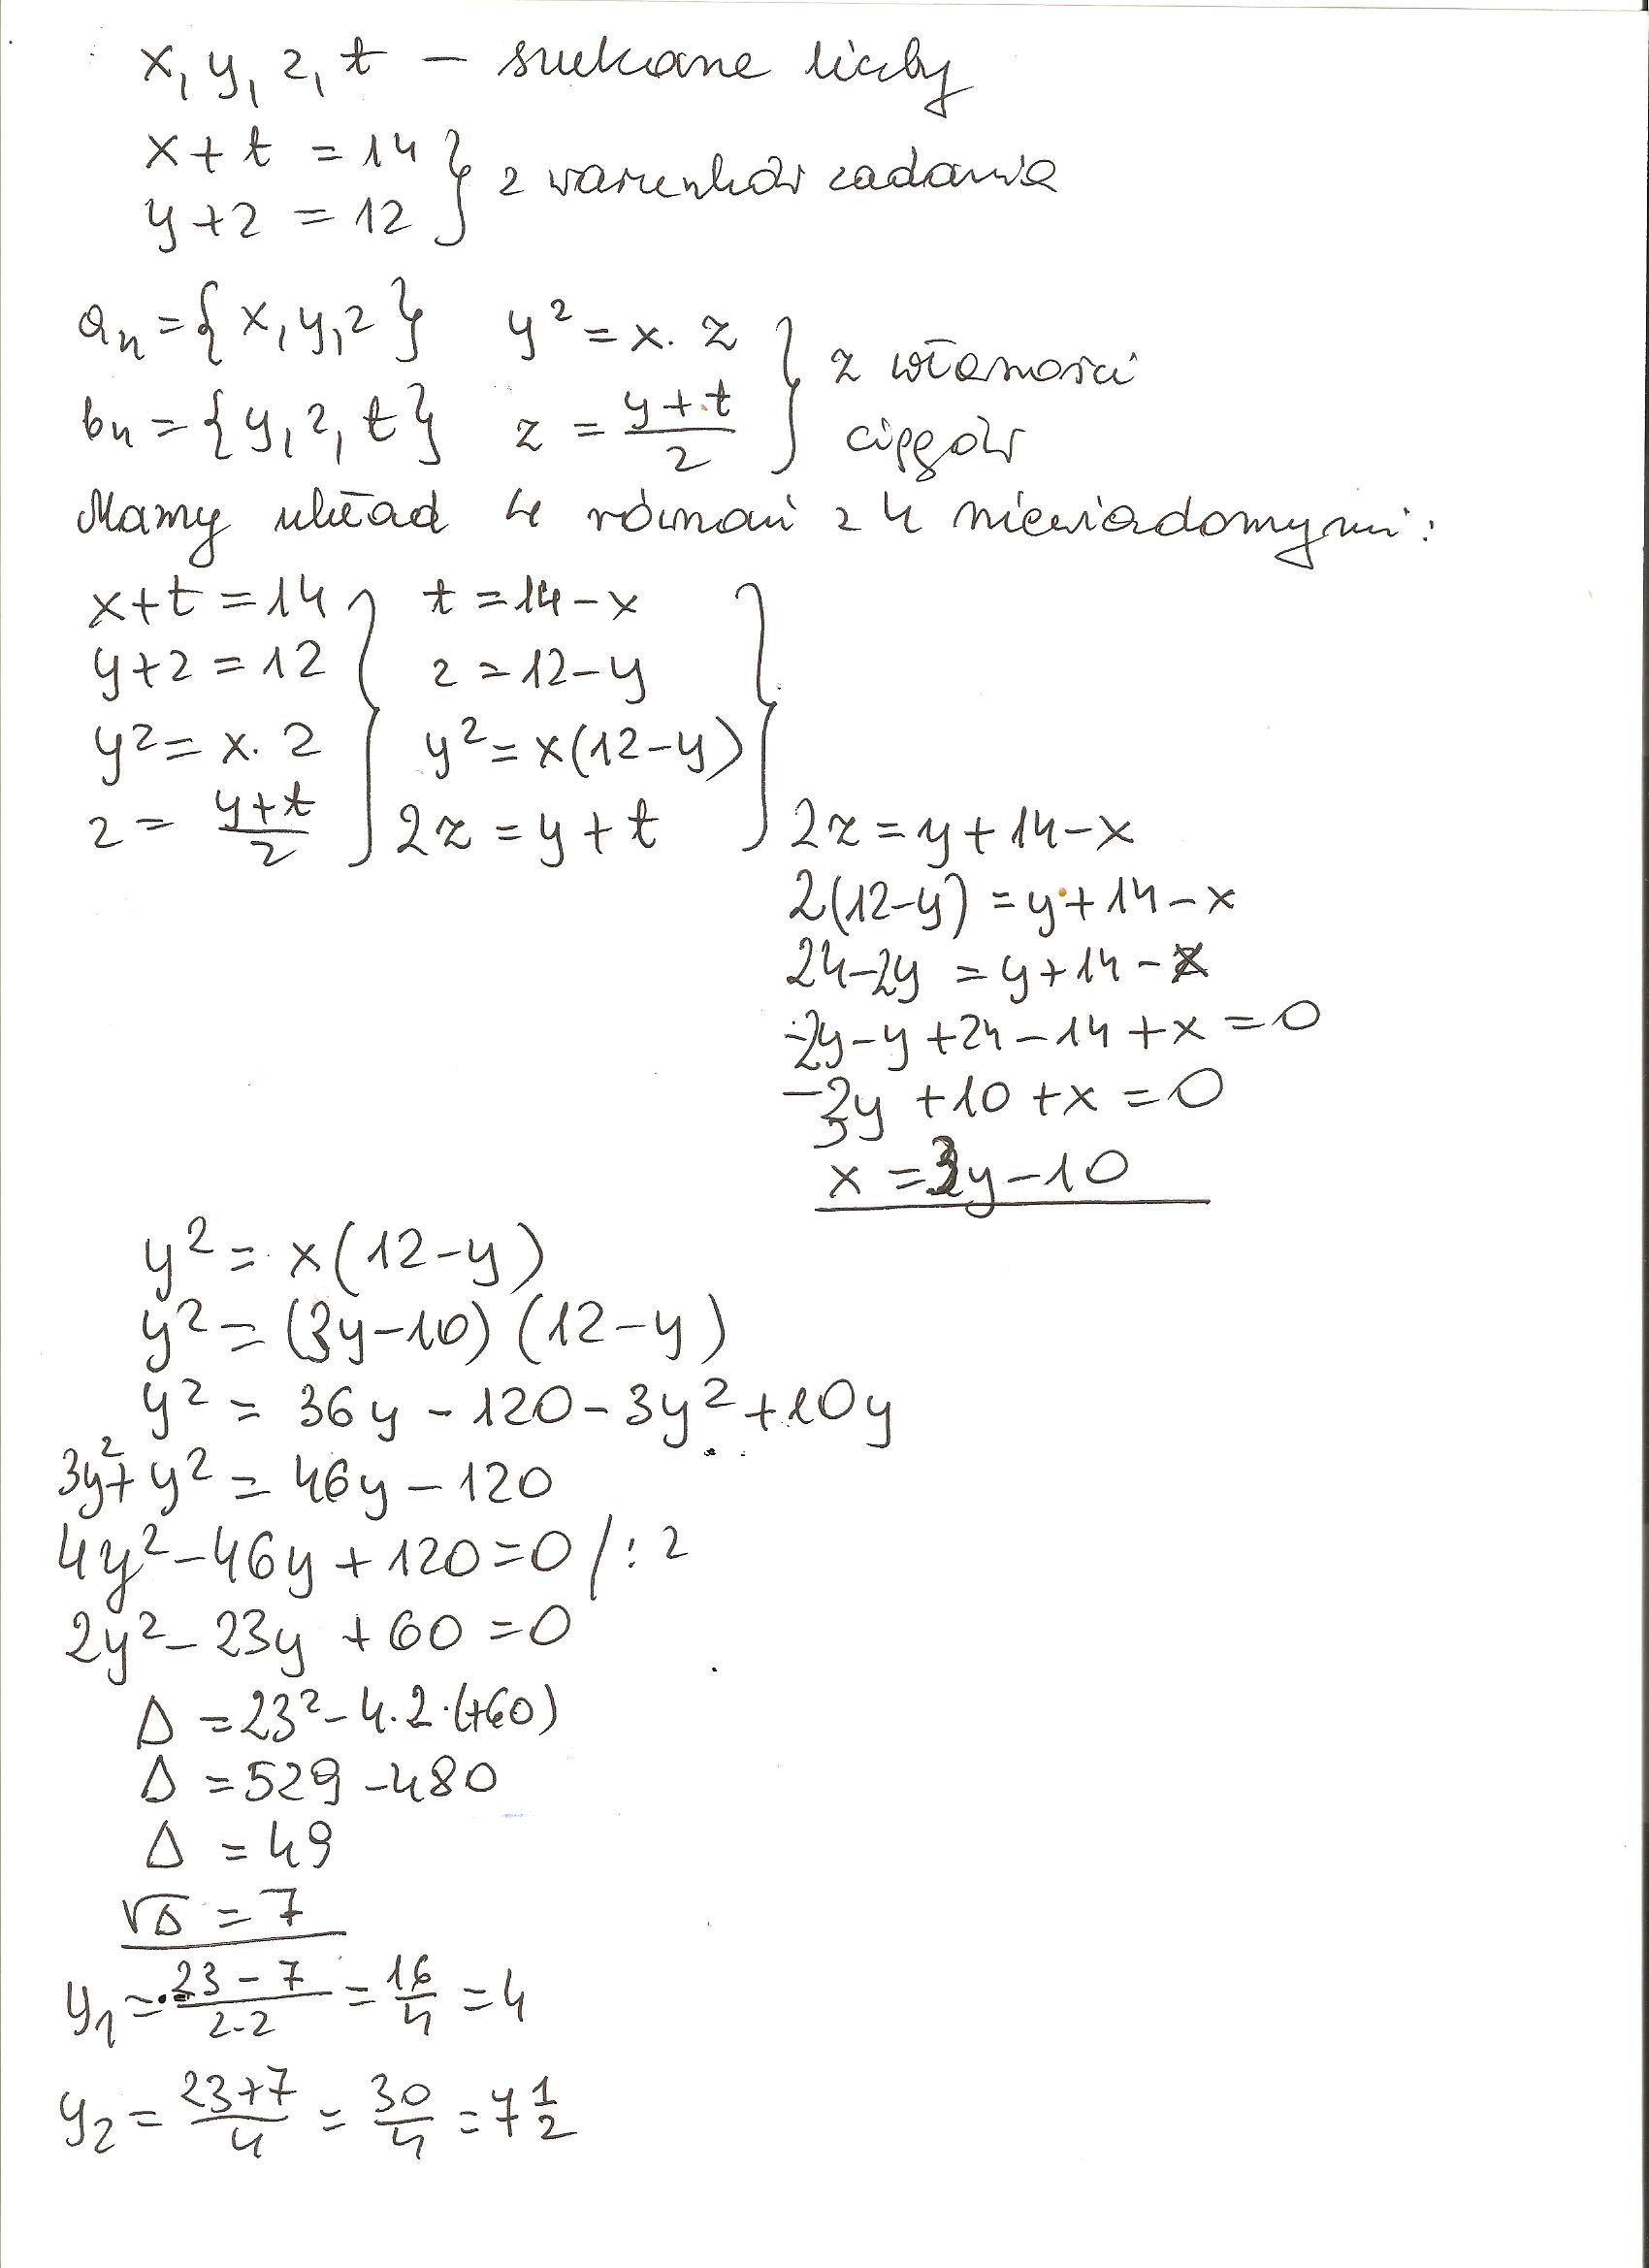 x, y, z, t – szukane liczby
x + t = 14
y + z = 12 } z warunków zadania
an = {x, y, z} y² = x · z
bn = {y, z, t} z = (y + t)/2 } z własności ciągów
Mamy układ 4 równań z 4 niewiadomymi:
x + t = 14 } t = 14 – x }
y + z = 12 z = 12 – y
y² = x · z y² = x(12 – y)
z = (y + t)/2 2z = y + t
2z = y + 14 – x
2(12 – y) = y + 14 – x
24 – 2y = y + 14 – x
-2y – y + 24 – 14 + x = 0
-3y + 10 + x = 0
x = 3y – 10
y² = x(12 – y)
y² = (3y – 10)(12 – y)
y² = 36y – 120 – 3y² + 10y
3y² + y² = 46y – 120
4y² – 46y + 120 = 0 /: 2
2y² – 23y + 60 = 0
Δ = 23² – 4·2·(+60)
Δ = 529 – 480
Δ = 49
√Δ = 7
y₁ = (23 – 7)/(2·2) = 16/4 = 4
y₂ = (23 + 7)/4 = 30/4 = 7 1/2